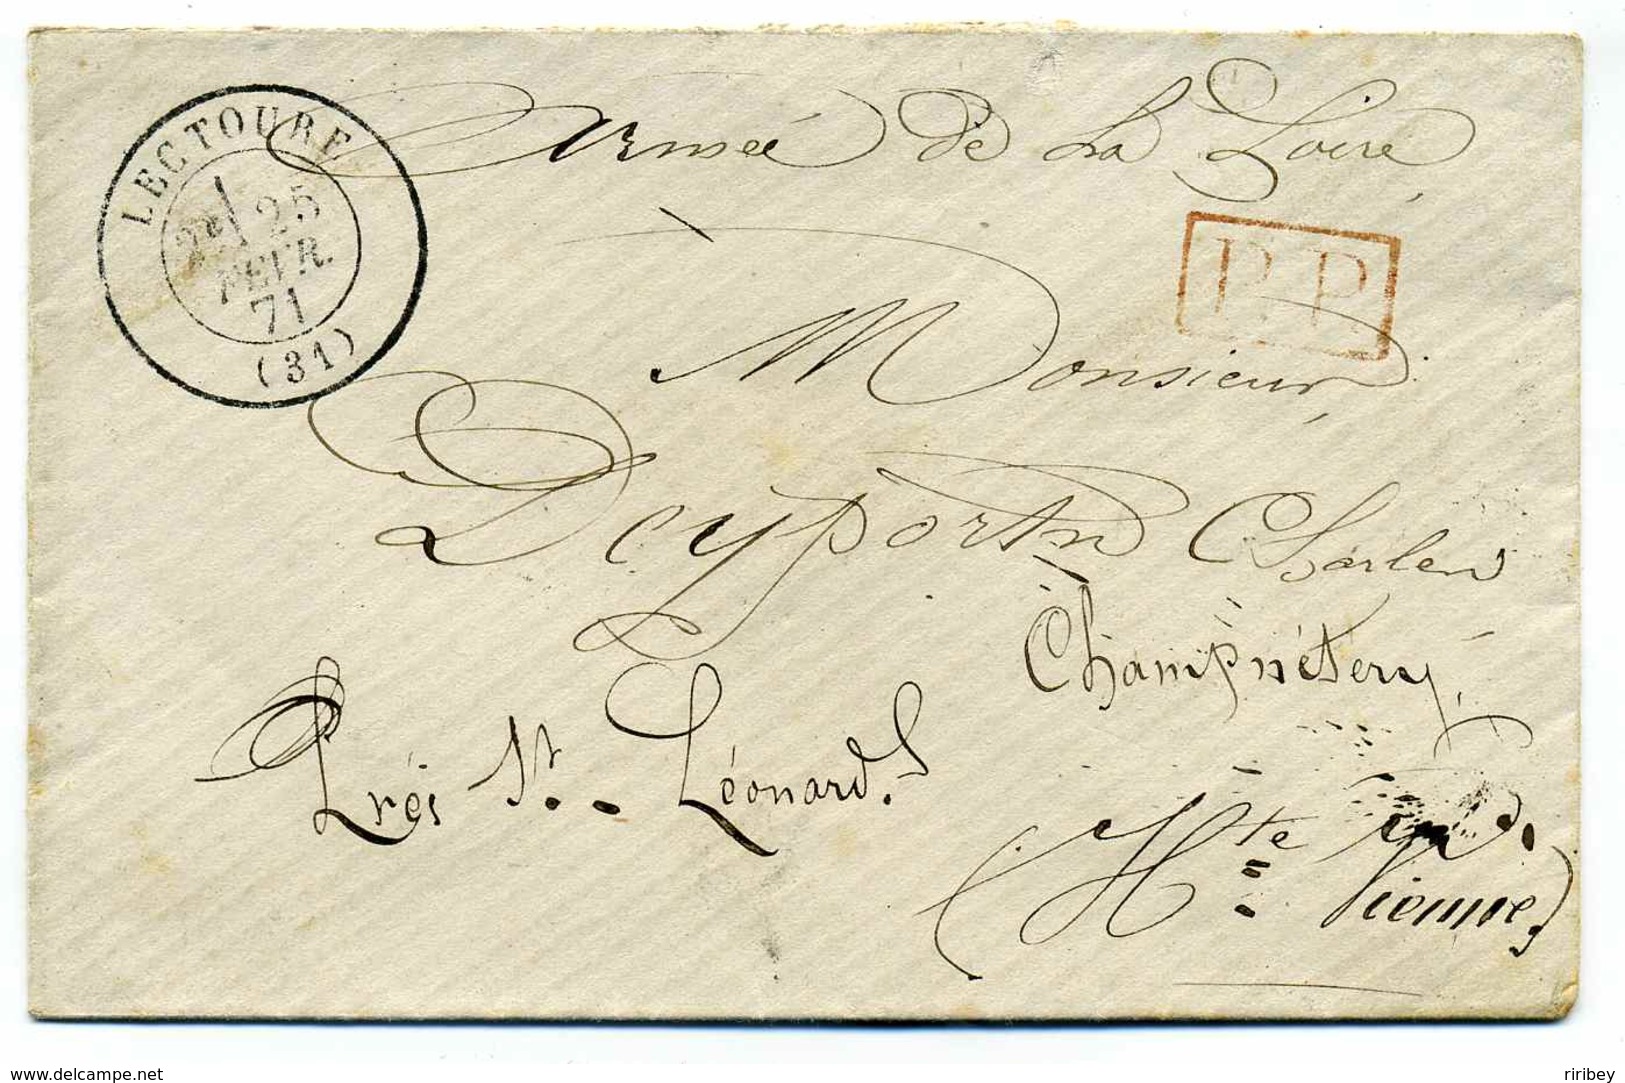 Armée de La Loire
LECTOURE
2E/ 25
FEVR.
71
(31)
P.P.
Monsieur,
Charles
Champnétery,
Près St. Léonard.
(Hte Vienne)
www.delcampe.net
riribey